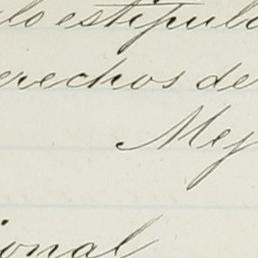 lo estipulo
erechos de
Mej
ional